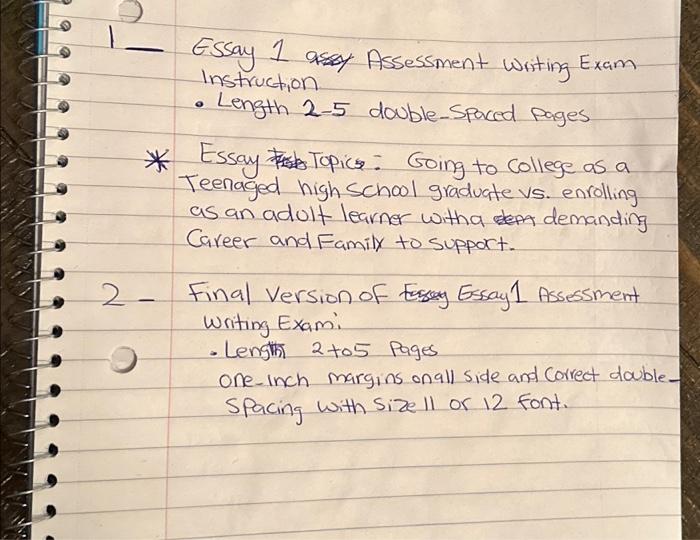 1 — Essay 1 Assessment Writing Exam
Instruction
• Length 2-5 double-Spaced Pages
* Essay Topics: Going to College as a
Teenaged high School graduate vs. enrolling
as an adult learner with a demanding
Career and Family to support.
2 - Final Version of Essay 1 Assessment
Writing Exam:
• Length 2 to 5 Pages
one-inch margins on all side and Correct double-
Spacing with Size 11 or 12 Font.